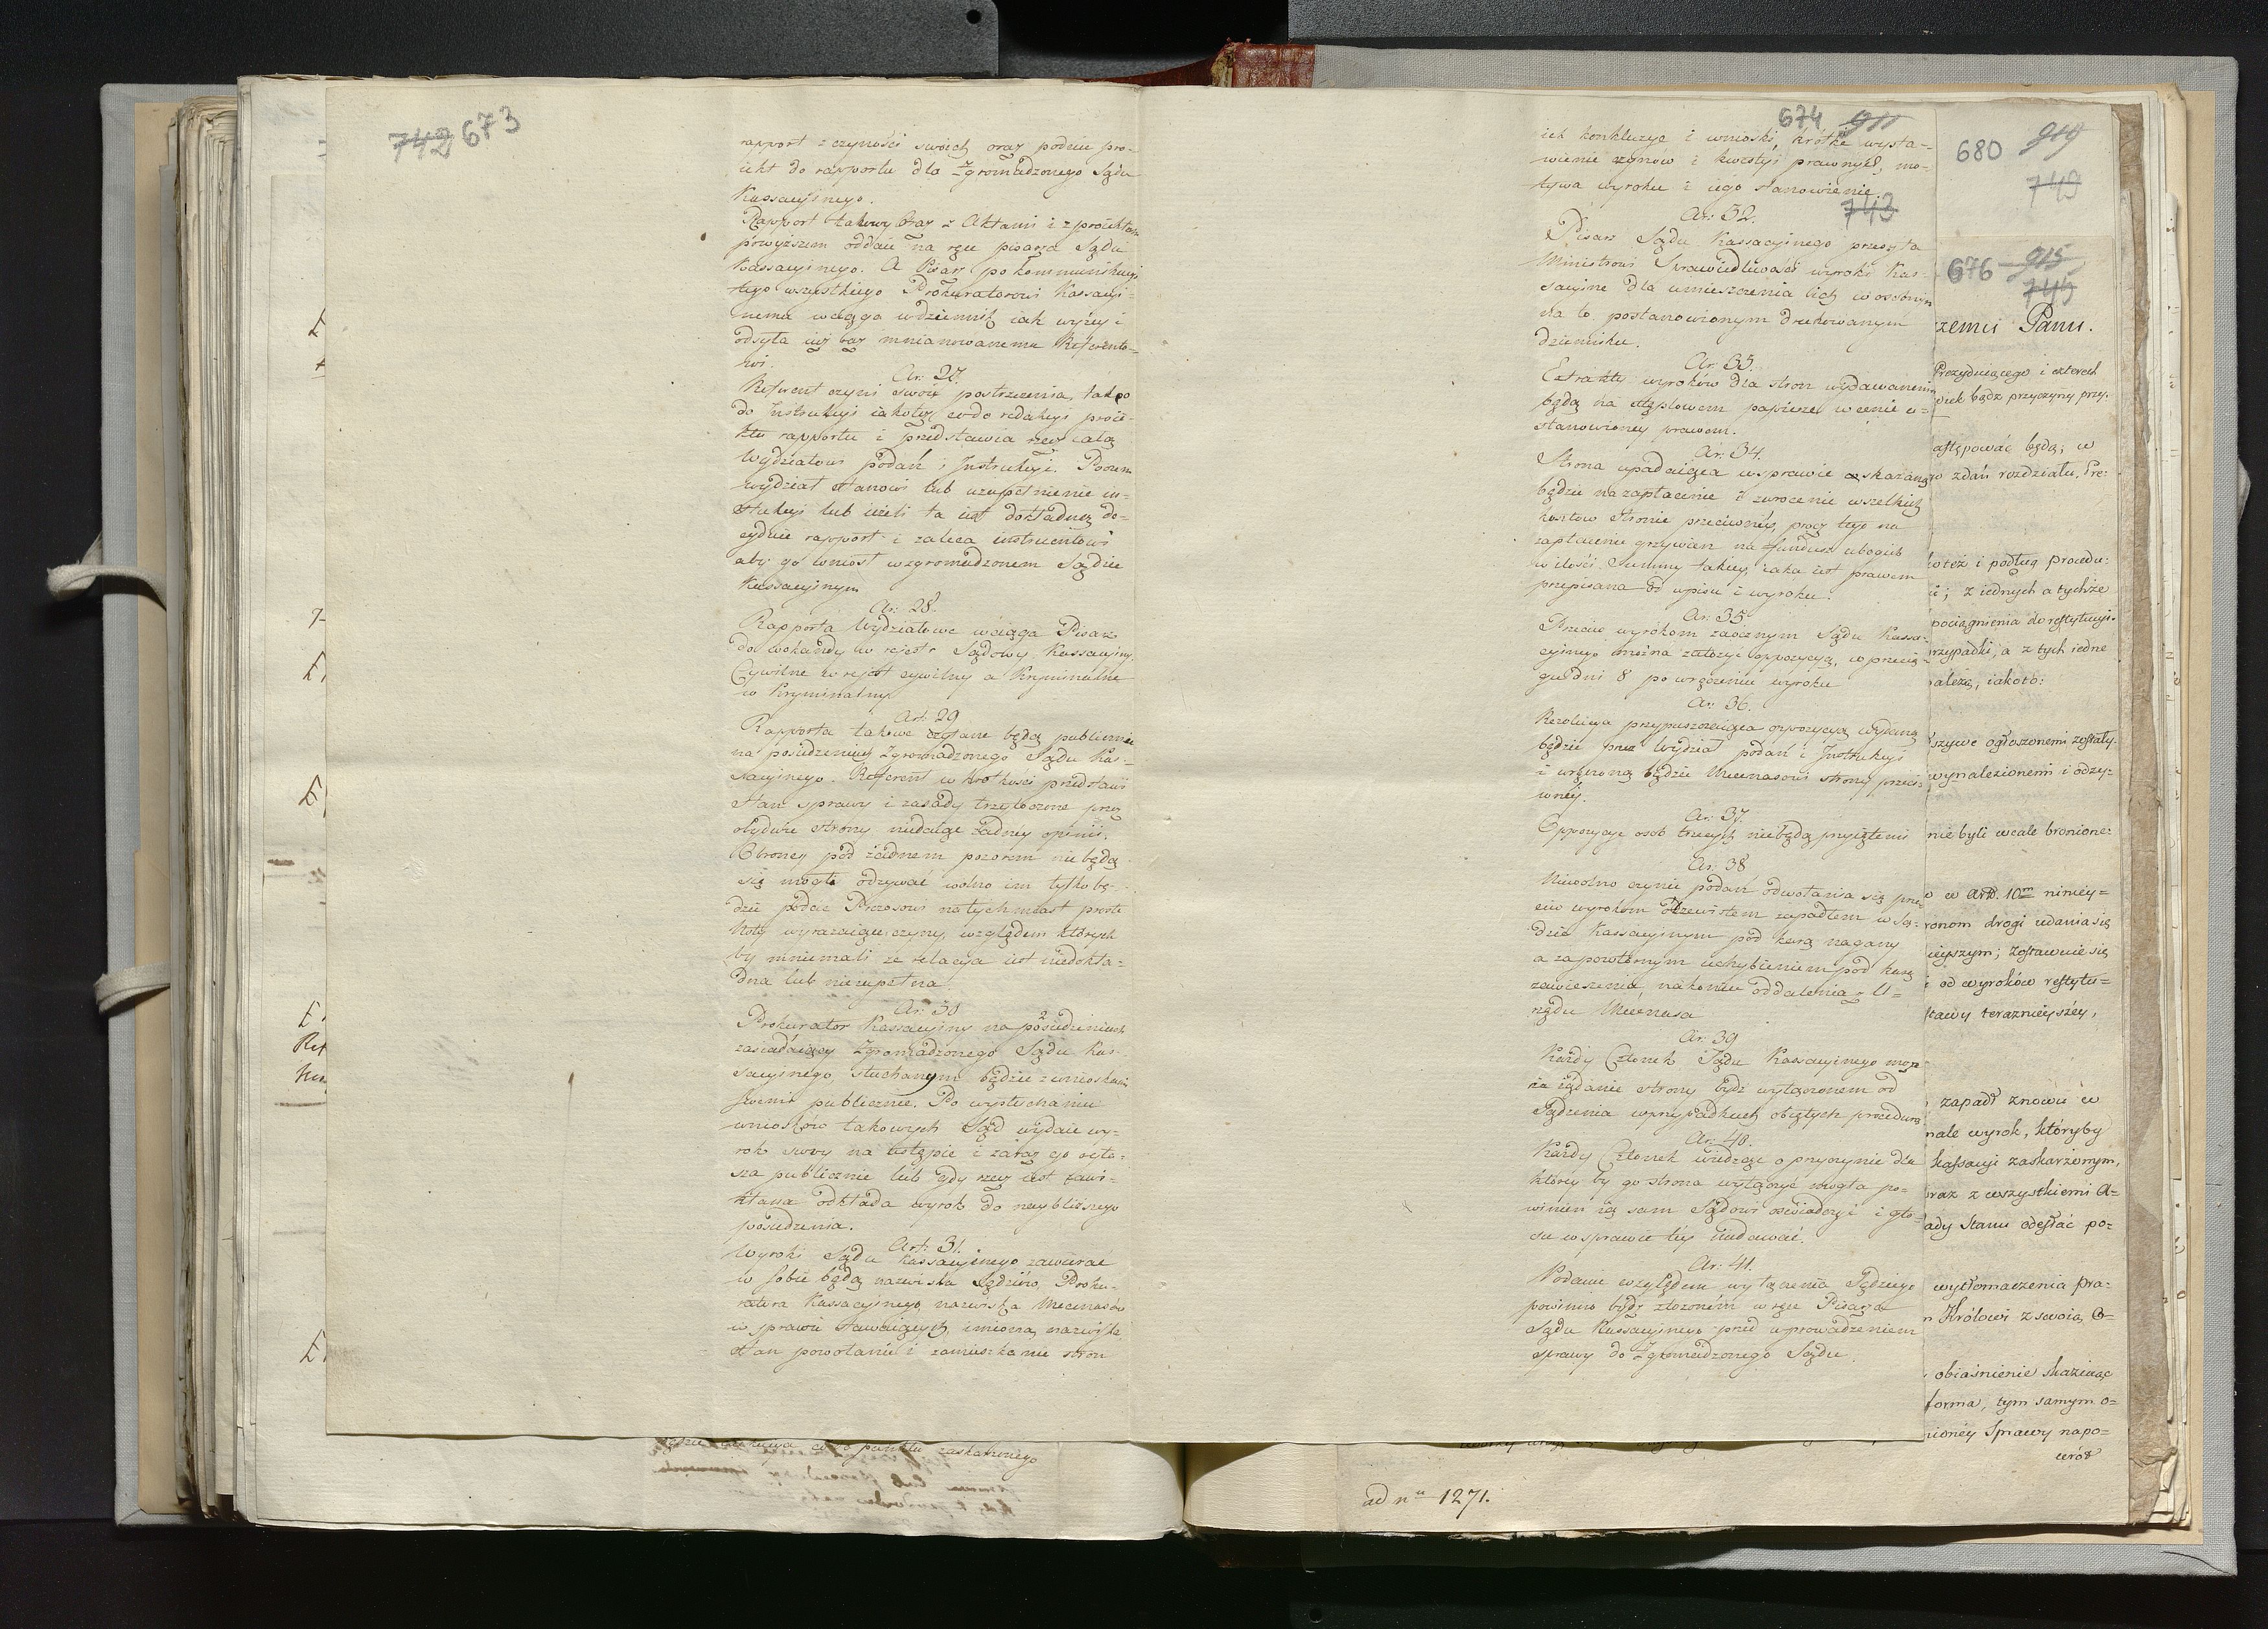 742 673
rapport z czynności swoich oraz podaie pro-
iekt do rapportu dla Zgromadzonego Sądu
Kassacyinego.
Rapport takowy oraz z Aktami i z proiektem
powyższem oddaie na ręce pisarza Sądu
Kassacyinego. A Pisarz po kommunikacyi
tego wszystkiego Prokuratorowi Kassacyi-
nemu wciąga w dziennik iak wyżey i
odsyła
mnianowanemu Referento-
wi.
Ar: 27.
Referent czyni swoie postrzeżenia, tak co
do Instrukcyi iakoteż co do redakcyi proie-
ktu rapportu i przedstawia rzecz całą
Wydziałowi podań i Instrukcyi. Poczem
wydział stanowi lub uzupełnienie in-
strukcyi lub ieżeli ta iest dokładną de-
cyduie rapport i zaleca instruentowi
aby go wniósł w zgromadzonem Sądzie
Kassacyinym
Ar: 28.
Rapporta Wydziałowe wciąga Pisarz
do wokandy w reiestr Sądowy Kassacyiny
Cywilne w reiestr cywilny a Kryminalne
w Kryminalny.
Art: 29
Rapporta takowe czytane będą publicznie
na posiedzeniach Zgromadzonego Sądu Kas-
sacyinego. Referent w krótkości przedstawi
stan sprawy i zasady trzetoczone przez
obydwie strony niedaiąc żadney opinii.
Obrońcy pod żadnem pozorem nie będą
się mogli odzywać wolno im tylko bę-
dzie podać Prezesowi natychmiast proste
Noty wyrażaiące czyny, względem których
by mniemali że relacya iest niedokła-
dna lub niezupełna.
Ar: 30
Prokurator Kassacyiny na posiedzeniach
zasiadaiący Zgromadzonego Sądu Kas-
sacyinego, słuchanym będzie z wnioskami
swemi publicznie. Po wysłuchaniu
wniosków takowych Sąd wydaie wy-
rok swóy na ustępie i zaraz go ogła-
sza publicznie lub gdy rzecz iest zawi-
kłana odkłada wyrok do naybliższego
posiedzenia.
Art: 31.
Wyroki Sądu Kassacyinego zawierać
w sobie będą nazwiska Sędziów, Proku-
ratora Kassacyinego, nazwiska Mecenasów
w sprawie stawaiących, imiona, nazwiska
stan powołanie i zamieszkanie stron
674 911
743
ich konkluzye i wnioski, krótkie wysta-
wienie czynów i kwestyi prawnych, mo-
tywa wyroku i iego stanowienie.
Ar: 32.
Pisarz Sądu Kassacyinego przesyła
Ministrowi Sprawiedliwości wyroki Kas-
sacyine dla umieszczenia ich w osobnym
na to postanowionym drukowanym
dzienniku.
Ar: 33.
Extrakty wyroków dla stron wydawanemi
będą na stęplowem papierze w cenie u-
stanowioney prawem.
Ar: 34.
Strona upadaiąca w sprawie skazaną
będzie na zapłacenie i zwrócenie wszelkich
kosztów stronie przeciwney, prócz tego na
zapłacenie grzywien na fundusz ubogich
w ilości Summy takiey, iaka iest prawem
przepisana od wpisu i wyroku.
Ar: 35
Przeciw wyrokom zaocznym Sądu Kassa-
cyinego można założyć oppozycyą, w przecią-
gu dni 8 po wręczeniu wyroku
Ar: 36.
Rezolucya przypuszczaiąca oppozycyą wydaną
będzie przez Wydział podań i Instrukcyi
i wręczoną będzie Mecenasowi strony przeci-
wney.
Ar: 37.
Oppozycye osob trzecich niebędą przyiętemi
Ar: 38
Niewolno czynić podań odwołania się prze-
ciw wyrokom oczewistem zapadłem w Są-
dzie Kassacyinym pod karą nagany
a za powtórnym uchybieniem pod karą
zawieszenia, nakoniec oddalenia z U-
rzędu Mecenasa
Ar: 39
Każdy Członek Sądu Kassacyinego może
na żądanie strony bydź wyłączonem od
Sądzenia w przypadkach obiętych procedurą
Ar: 40.
Każdy Członek wiedząc o przyczynie dla
którey by go strona wyłączyć mogła po-
winien się sam Sądowi oświadczyć i gło-
su w sprawie tey niedawać.
Ar: 41.
Podanie względem wyłączenia Sędziego
powinno bydź złożoném w ręce Pisarza
Sądu Kassacyinego przed wprowadzeniem
sprawy do Zgromadzonego Sądu.
680 919
749
676 915
745
zemu Panu.
Prezyduiącego i czterech
wiek bądz przyczyny przy-
astępować będą; w
zdań rozdziału, Pre-
oteż i podług procedu-
; z iednych a tychże
pociągnienia do restytucyi.
przypadki, a z tych iedne
ależą, iakoto:
szywe ogłoszonemi zostały.
wynalezionemi i odzy-
nie byli wcale bronione-
w Artt. 10m niniey-
ronom drogi udania się
ieyszym; zostawuie się
od wyroków restytu-
tawy teraznieyszéy,
zapadł znowu w
nale wyrok, któryby
kassacyi zaskarżonym,
raz z wszystkiemi A-
ady Stanu odesłać po-
wytłomaczenia pra-
Królowi z swoią O-
obiaśnienie skazuiąc
forma, tym samym o-
ioney Sprawy napo-
wrót
punktu zaskarżonego
ad nu 1271.